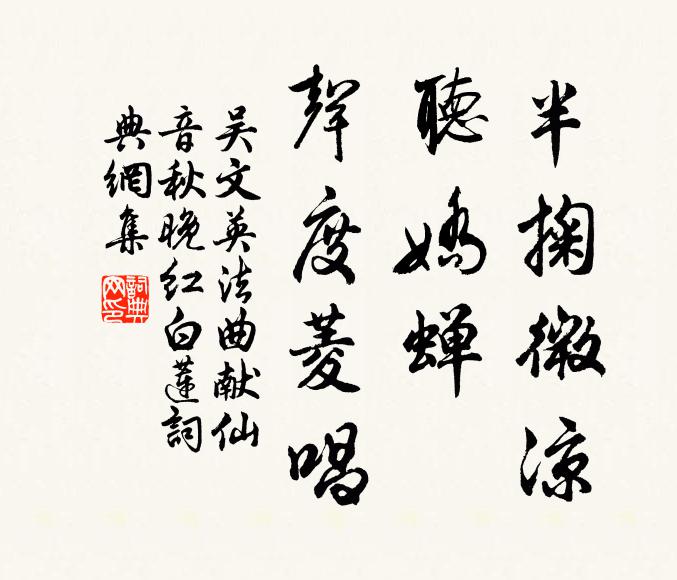 半掬微涼
聽嬌蟬
聲度菱唱
吳文英法曲献仙
音秋晚红白蓮詞
典網集
詞典網印